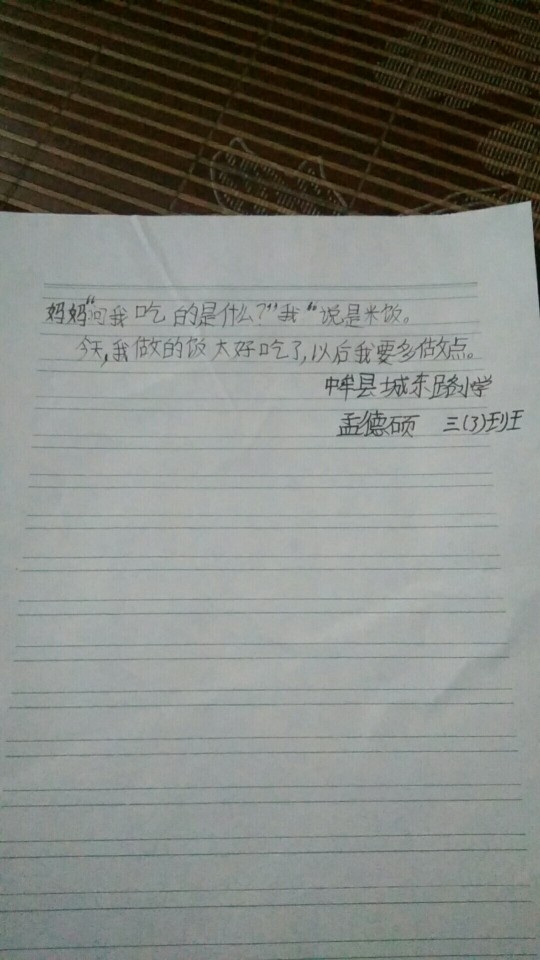 妈妈“问我吃的是什么?”我“说是米饭。
今天,我做的饭大好吃了,以后我要多做点。
中牟县城东路小学
孟德硕 三(3)班